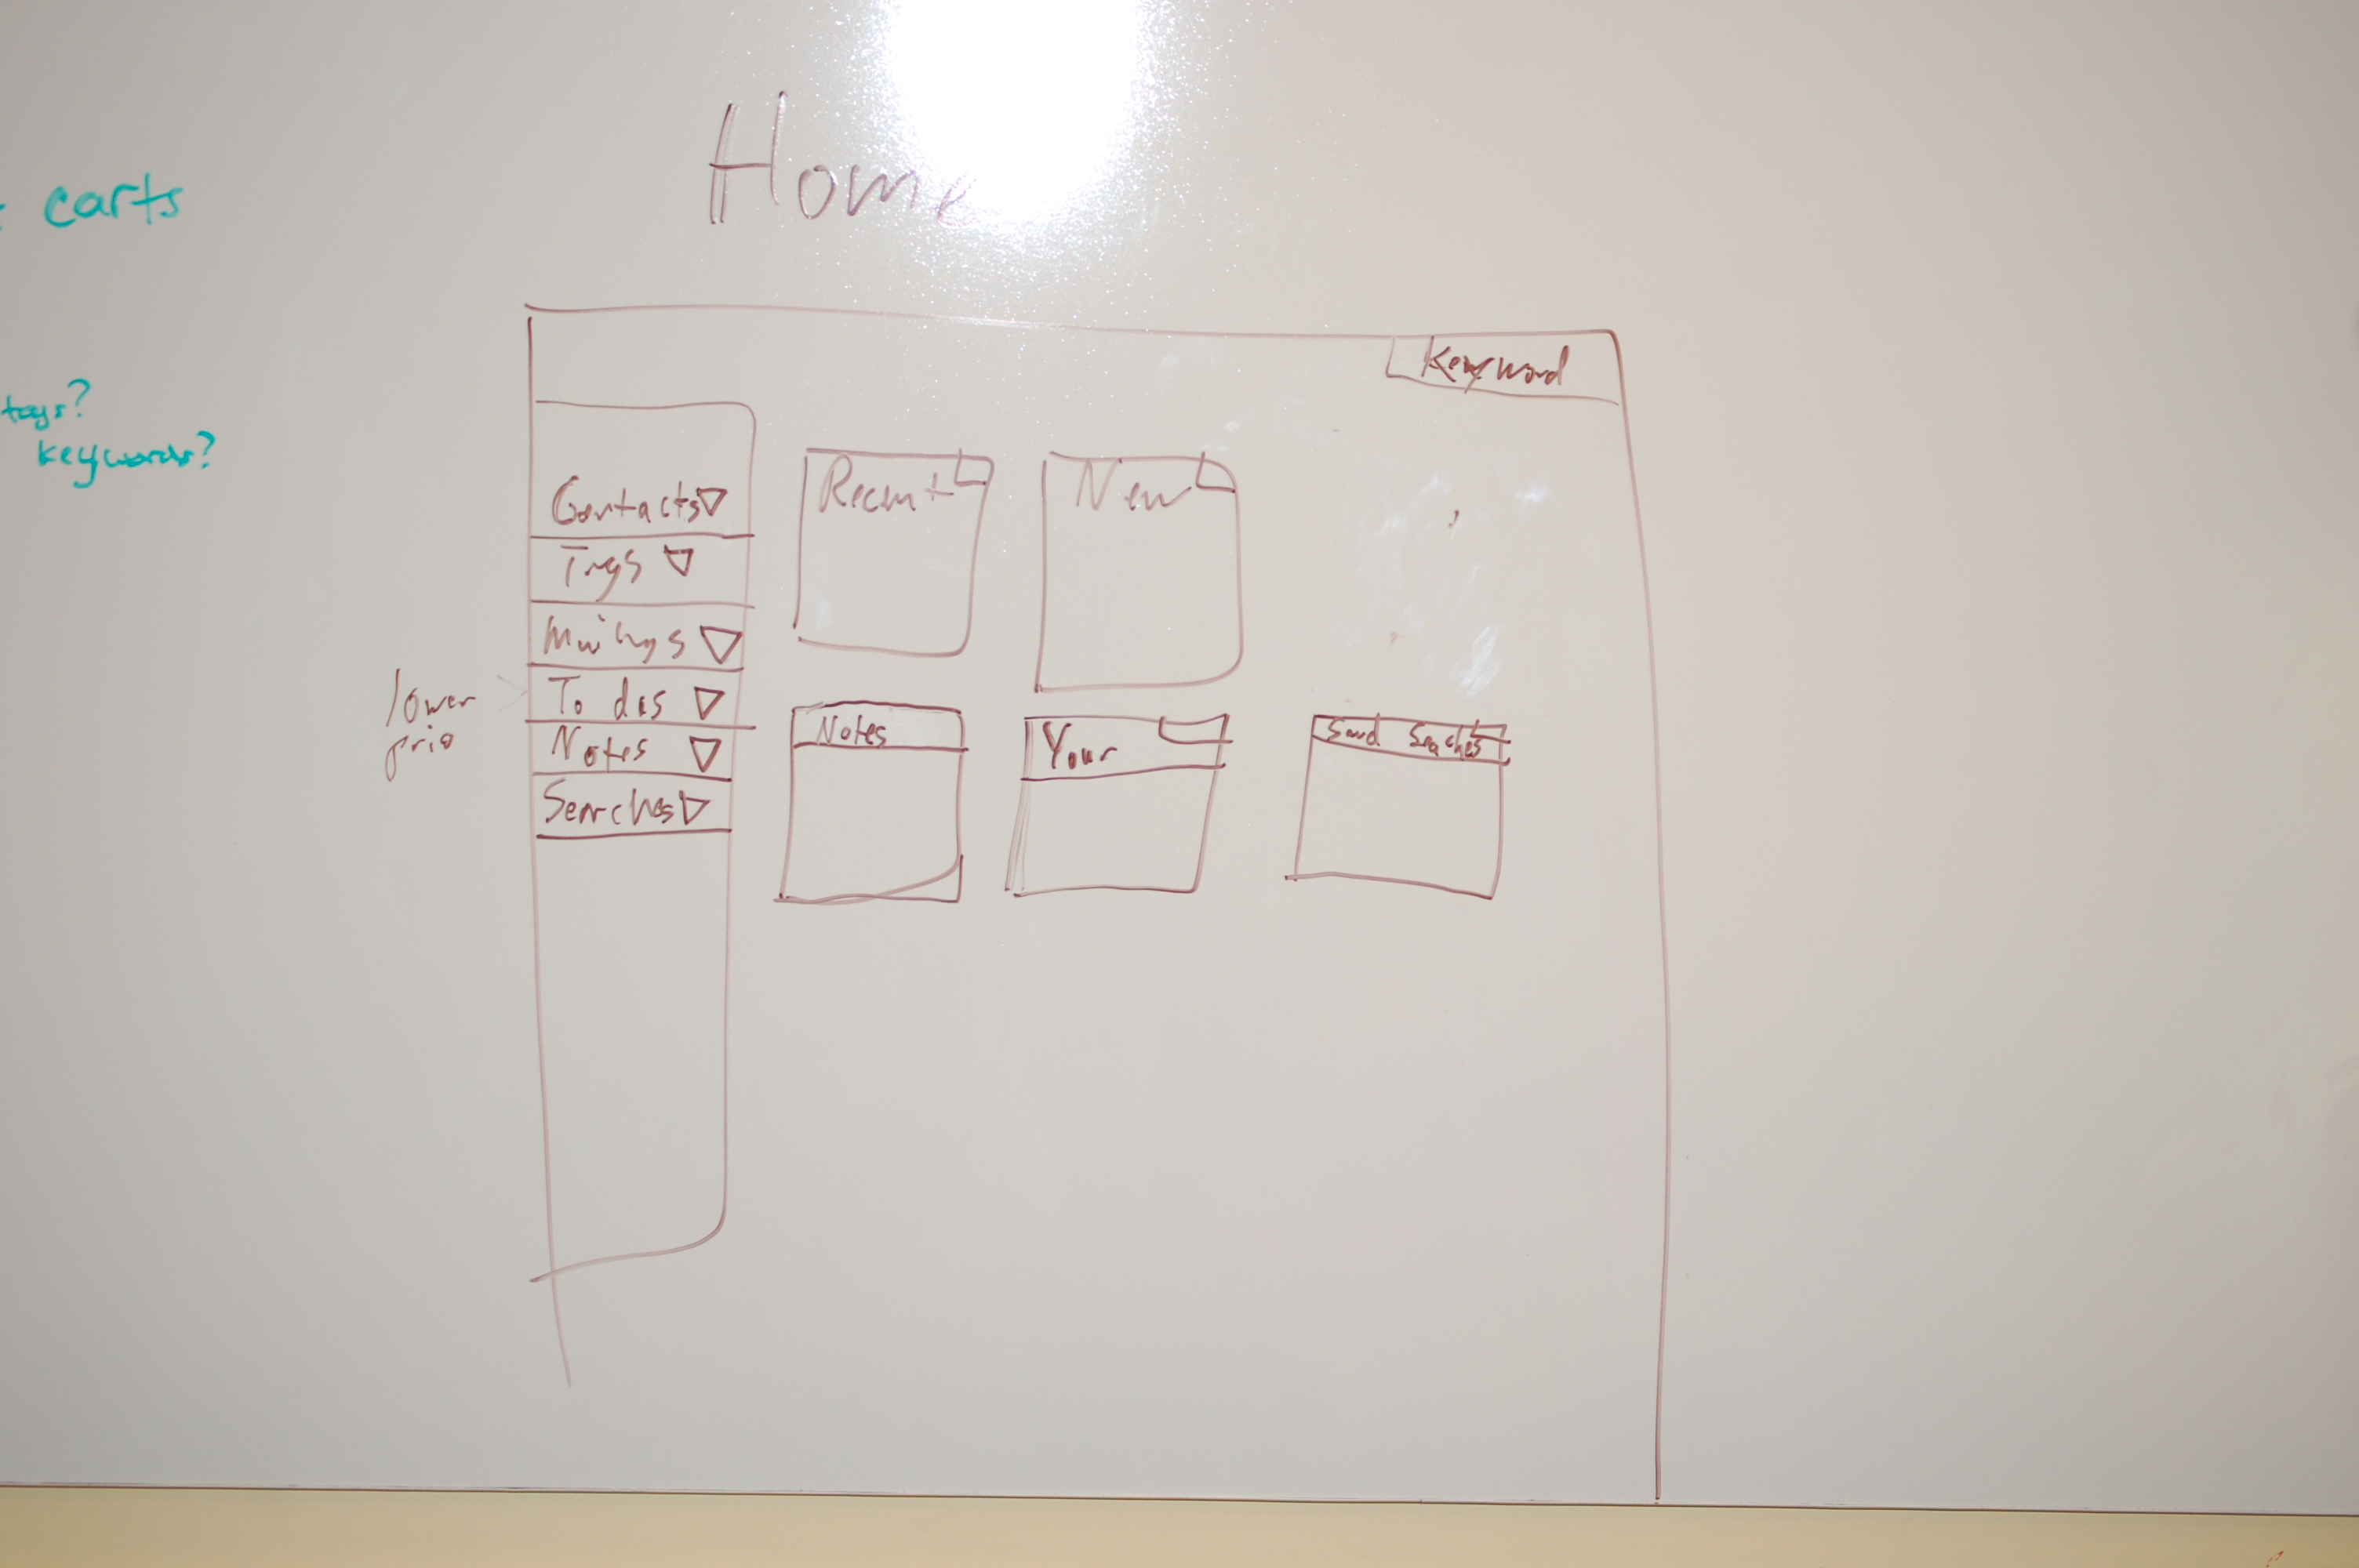 carts
Home
tags?
keywords?
Keyword
Contacts
Tags
To dos
Notes
Searches
lower
prio
Recent
New
Notes
Your
Saved Searches